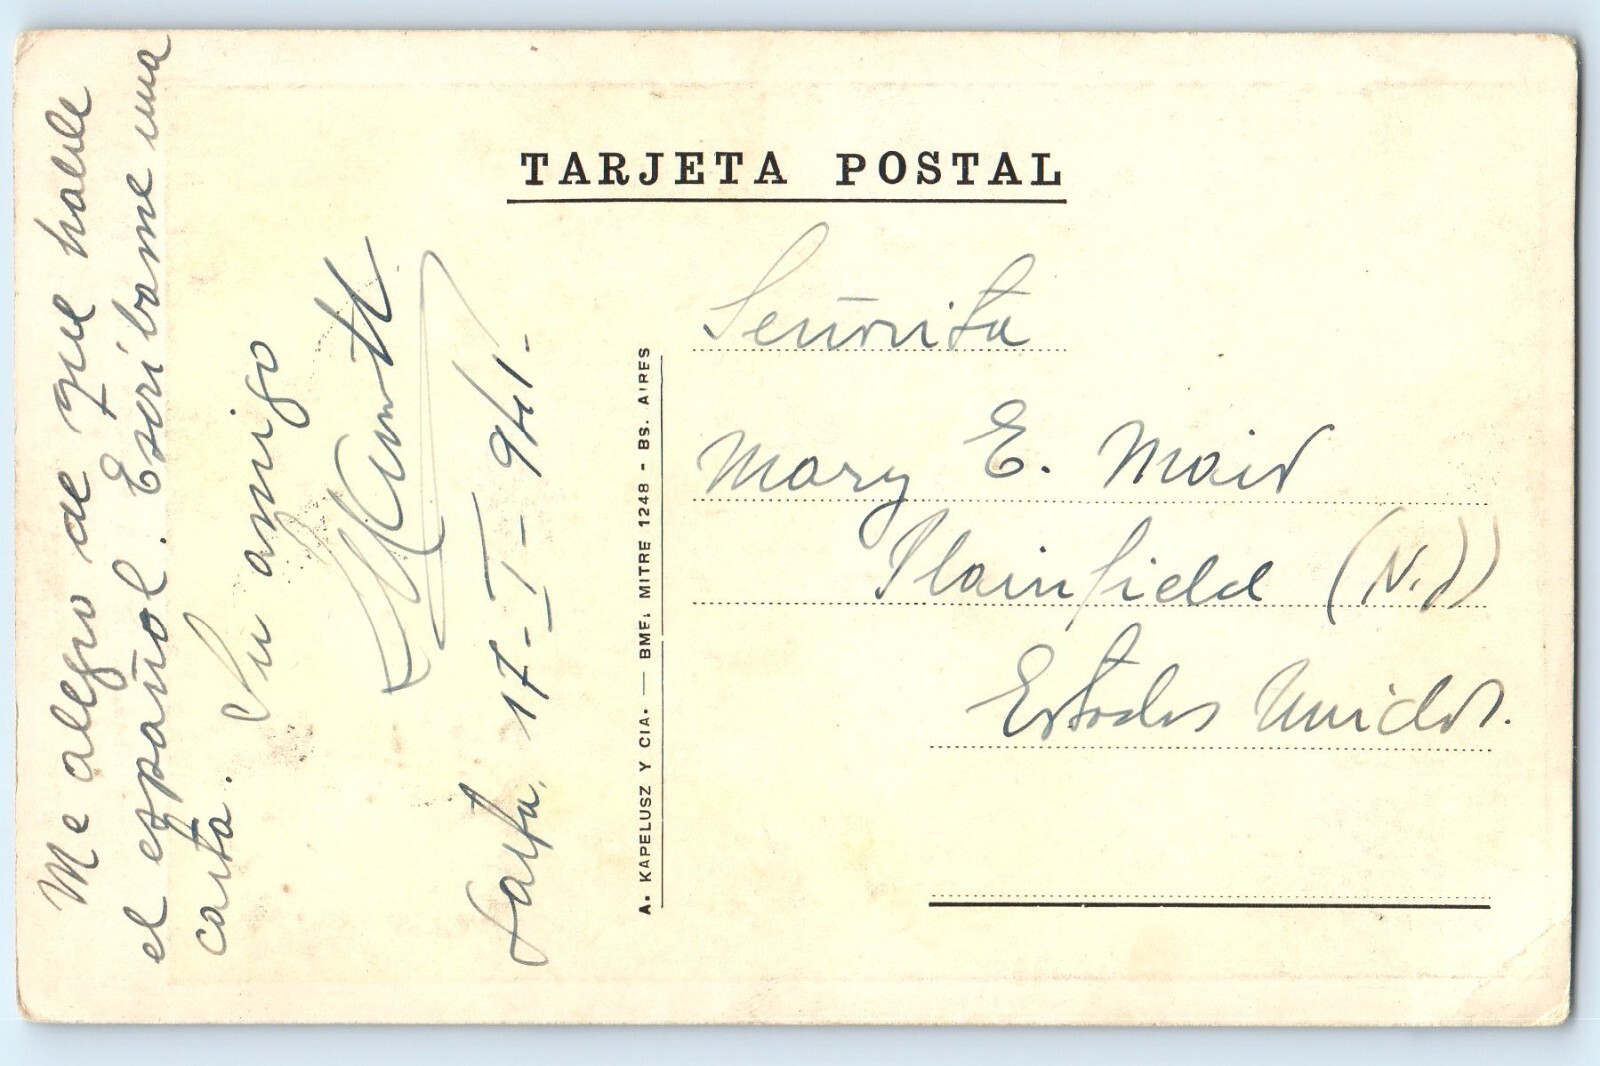 TARJETA POSTAL
Me alegro de que hable
el español. Escribame una
carta.
Su amigo
Salta, 17-I-941-
A. KAPELUSZ Y CIA. — BMÉ. MITRE 1248 - BS. AIRES
Señorita
Mary E. Mair
Plainfield (N.J)
Estados Unidos.